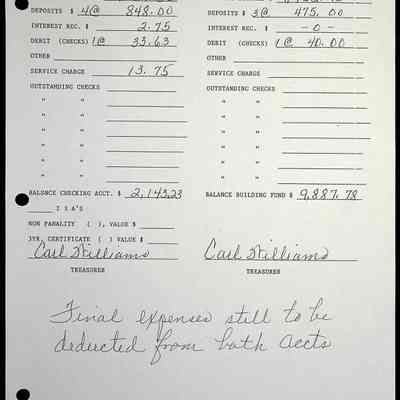 DEPOSITS $ 4@ 848.00 DEPOSITS $ 3@ 475.00
INTEREST REC. $ 2.75 INTEREST REC. $ -0-
DEBIT (CHECKS) 1@ 33.63 DEBIT (CHECKS) 1@ 40.00
OTHER OTHER
SERVICE CHARGE 13.75 SERVICE CHARGE
OUTSTANDING CHECKS OUTSTANDING CHECKS
" " " "
" " " "
" " " "
" " " "
" " " "
" " " "
BALANCE CHECKING ACCT. $ 2,143.23 BALANCE BUILDING FUND $ 9,887.78
I X A'S
NON PANALITY ( ), VALUE $
3YR. CERTIFICATE ( ) VALUE $
Carl Williams Carl Williams
TREASURER TREASURER
Final expenses still to be
deducted from both accts